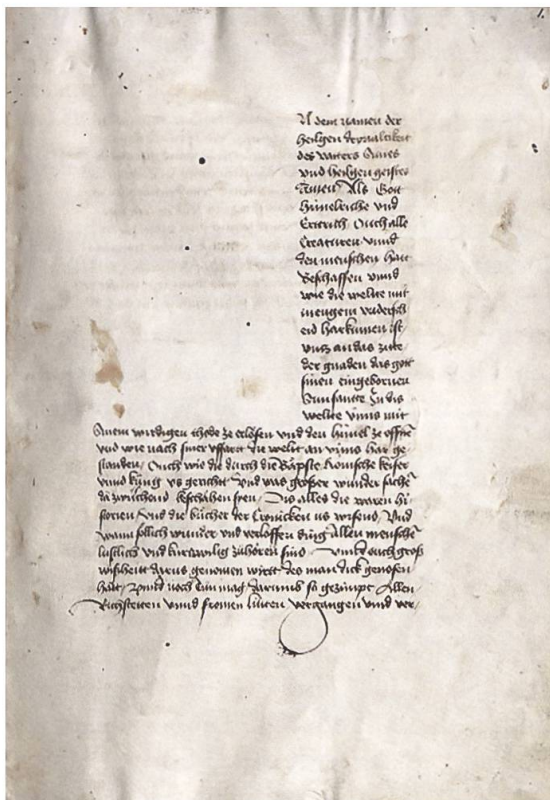 N dem namen der
heilgen dryualtikeit
des vatters Sunes
vnd heilgen geistes
Amen Als Gott
himelriche vnd
Ertrich Ouch alle
Creaturen vnnd
den menschen hatt
Beschaffen vnnd
wie die welte mit
mengem
harkumen ist
vntz an das zitte
der gnaden das gott
sinen eingebornen
Sun sante Jn dis
welte vnns mit
Sinem wirdigen thode ze erlösen vnd den himel ze offnen
vnd wie nach siner vffart die welt an vnns har ge
standen / Ouch wie die durch die Bäpste Romische keiser
vnnd küng vs gericht Vnd was grosser wunder sachen
da zwüschend beschähen sien / Dis alles die waren hi
storien / vnd die bücher der Cronicken vs wisend / Vnd
wann sollich wunder vnd verloffen ding Allen menschen
lustlich vnd kurtzwilig zuhören sind vnnd ouch gross
wisheitt darus genomen wirtt des man dick genossen
hatt / Vnnd noch tun mag / darumb so gezimpt Allen
Richstetten vnnd fromen lütten vergangen vnd ver /